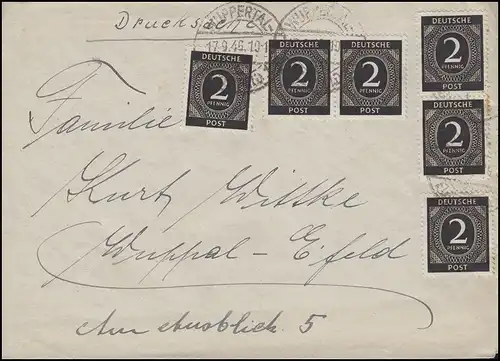 Drucksache
WUPPERTAL-
17.9.46.10-1
DEUTSCHE
2
PFENNIG
POST
DEUTSCHE
2
PFENNIG
POST
DEUTSCHE
2
PFENNIG
POST
DEUTSCHE
2
PFENNIG
POST
DEUTSCHE
2
PFENNIG
POST
DEUTSCHE
2
PFENNIG
POST
Familie
Kurt Wittke
Wuppal-Elfeld
Am Ausblick 5